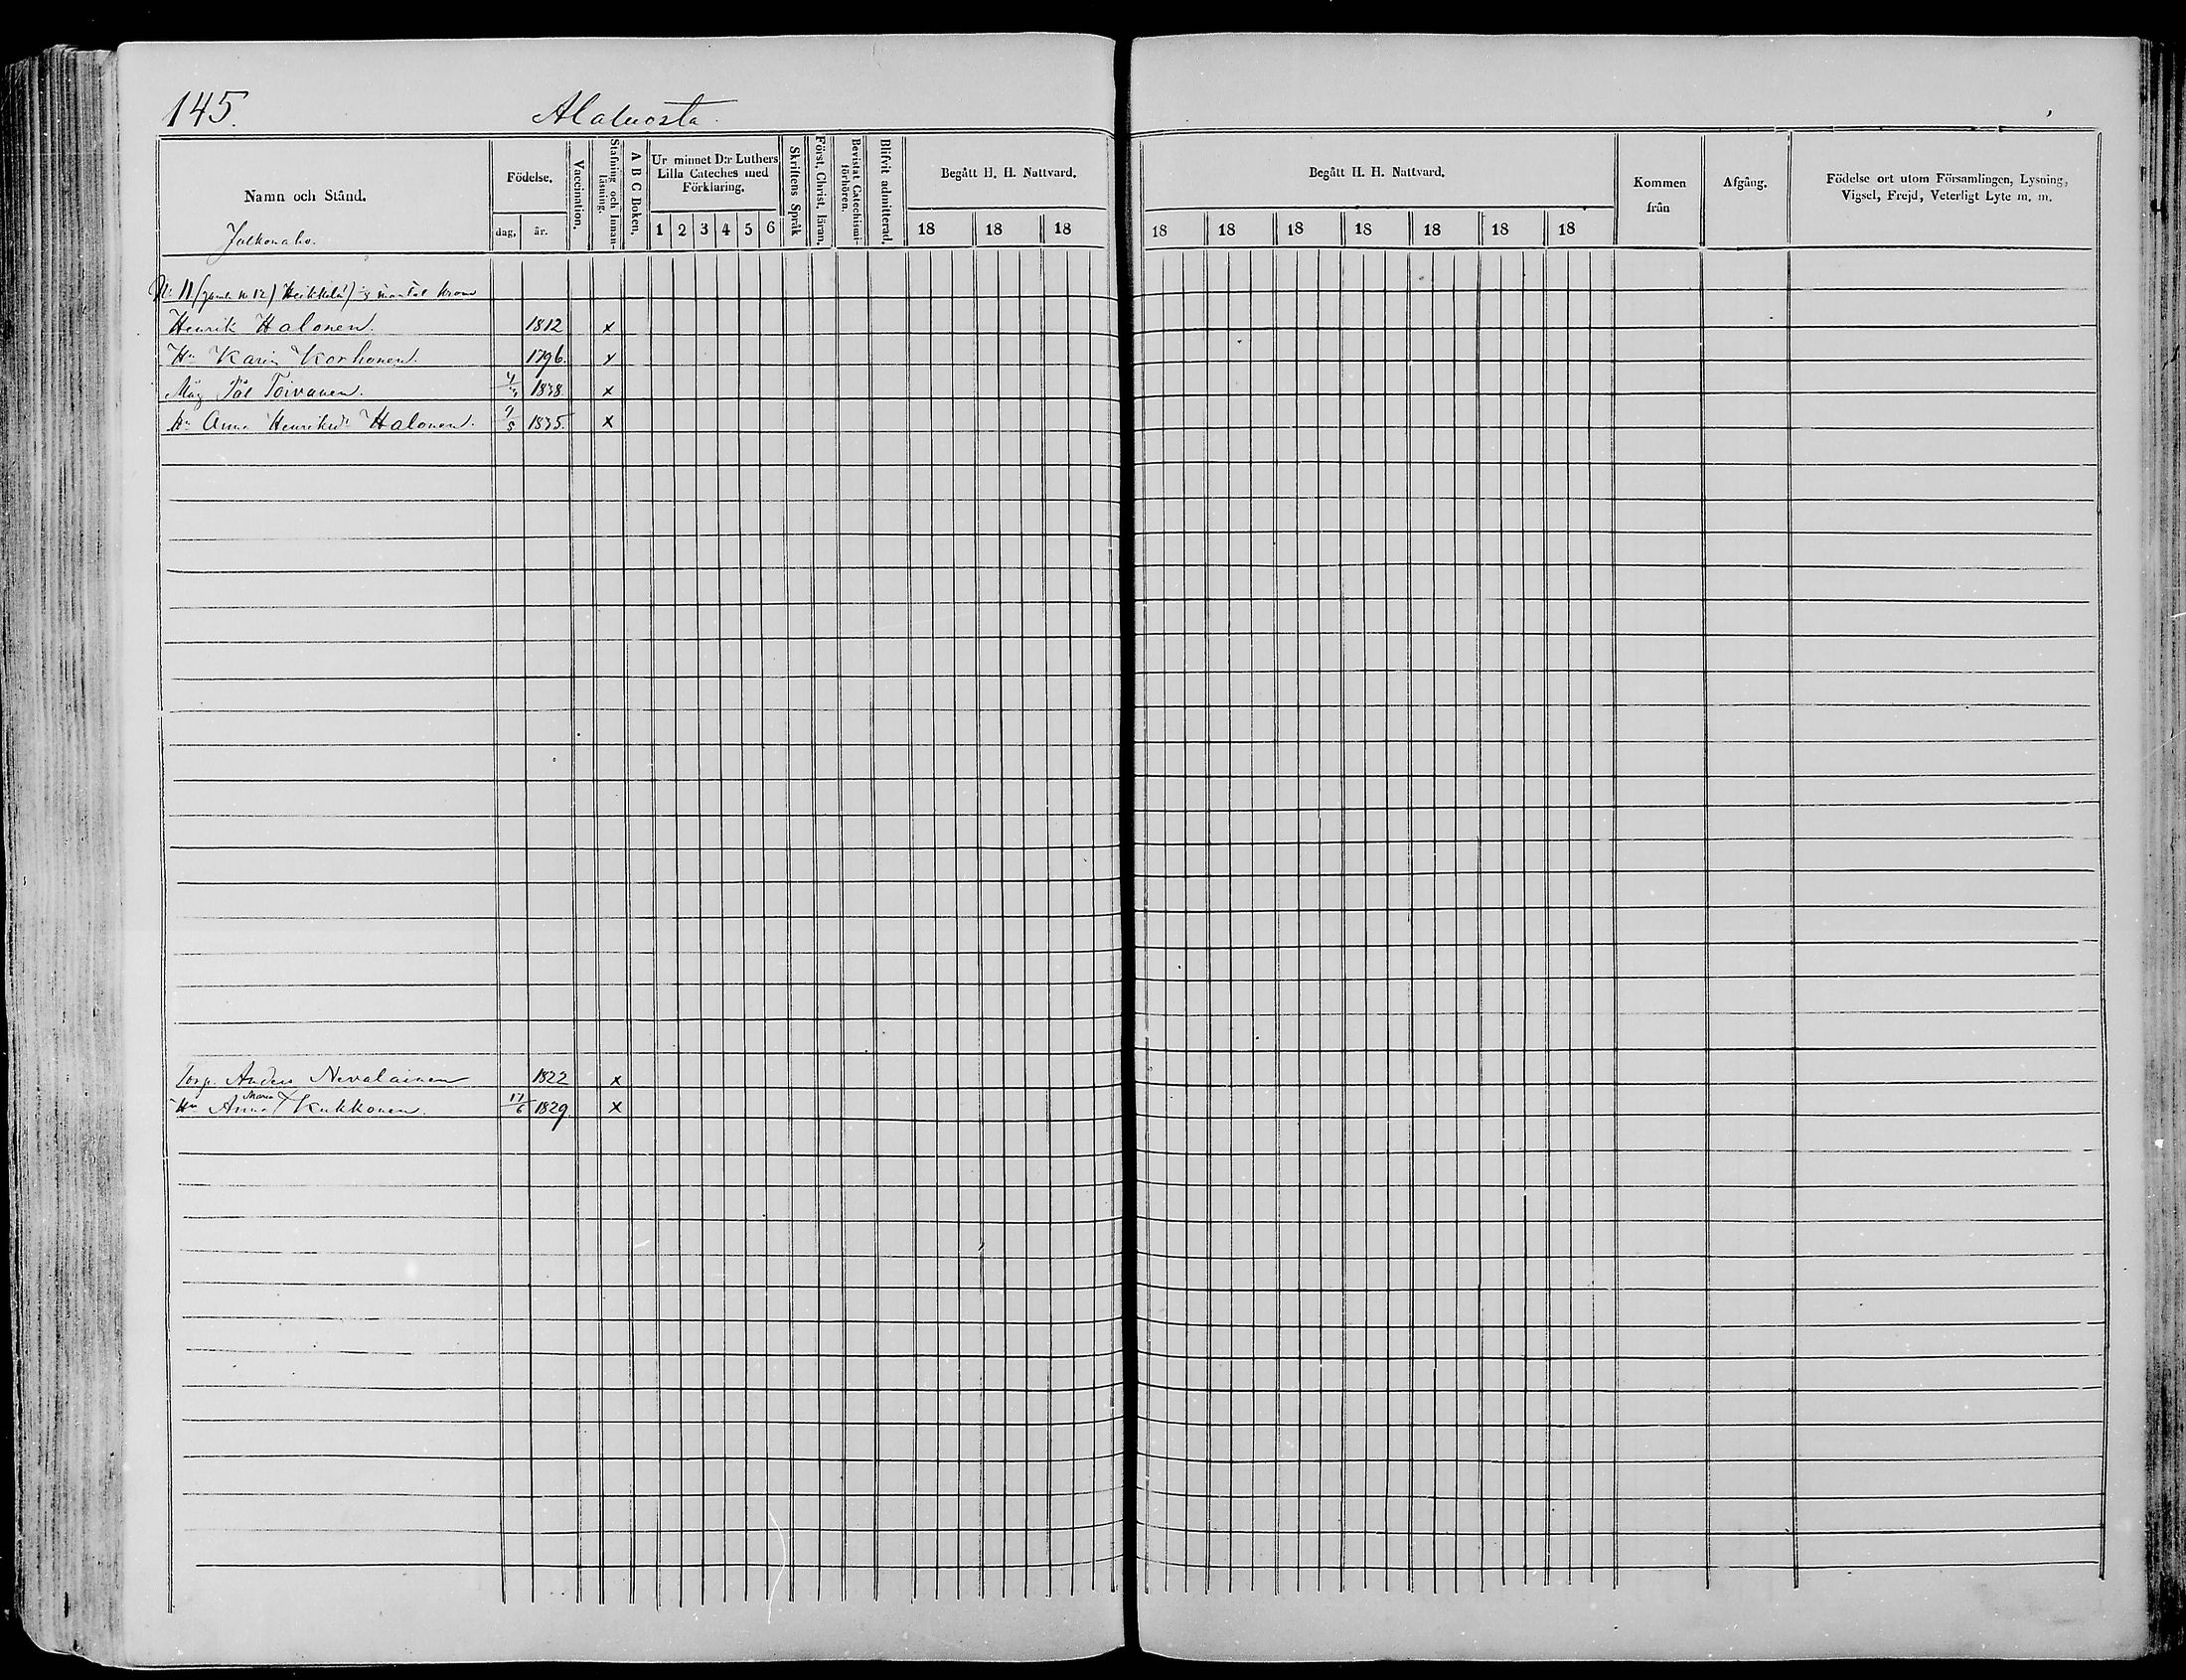 145.
Alaluosta.
Namn och Stånd.
Julkonaho.
Födelse.
dag. år.
Vaccination.
Stafning och Innanläsning.
A B C Boken.
Ur minnet D:r Luthers Lilla Cateches med Förklaring.
1 2 3 4 5 6
Skriftens Språk
Först. Christ. läran.
Bevistat Catechismiförhören.
Blifvit admitterad.
Begått H. H. Nattvard.
18 18 18
Begått H. H. Nattvard.
18 18 18 18 18 18 18
Kommen från
Afgång.
Födelse ort utom Församlingen, Lysning, Vigsel, Frejd, Veterligt Lyte m. m.
No 11 (gamla No 12) Heikkilä) mantal Krono
Henrik Halonen. 1812 x
Hu Karin Korhonen. 1796. x
Måg Pål Toivanen. 1838. x
Hu Anna Henriksdr Halonen. 9/5 1835. x
Torp. Anders Nevalainen 1822 x
Hu Anna Maria Kukkonen. 17/6 1829. x